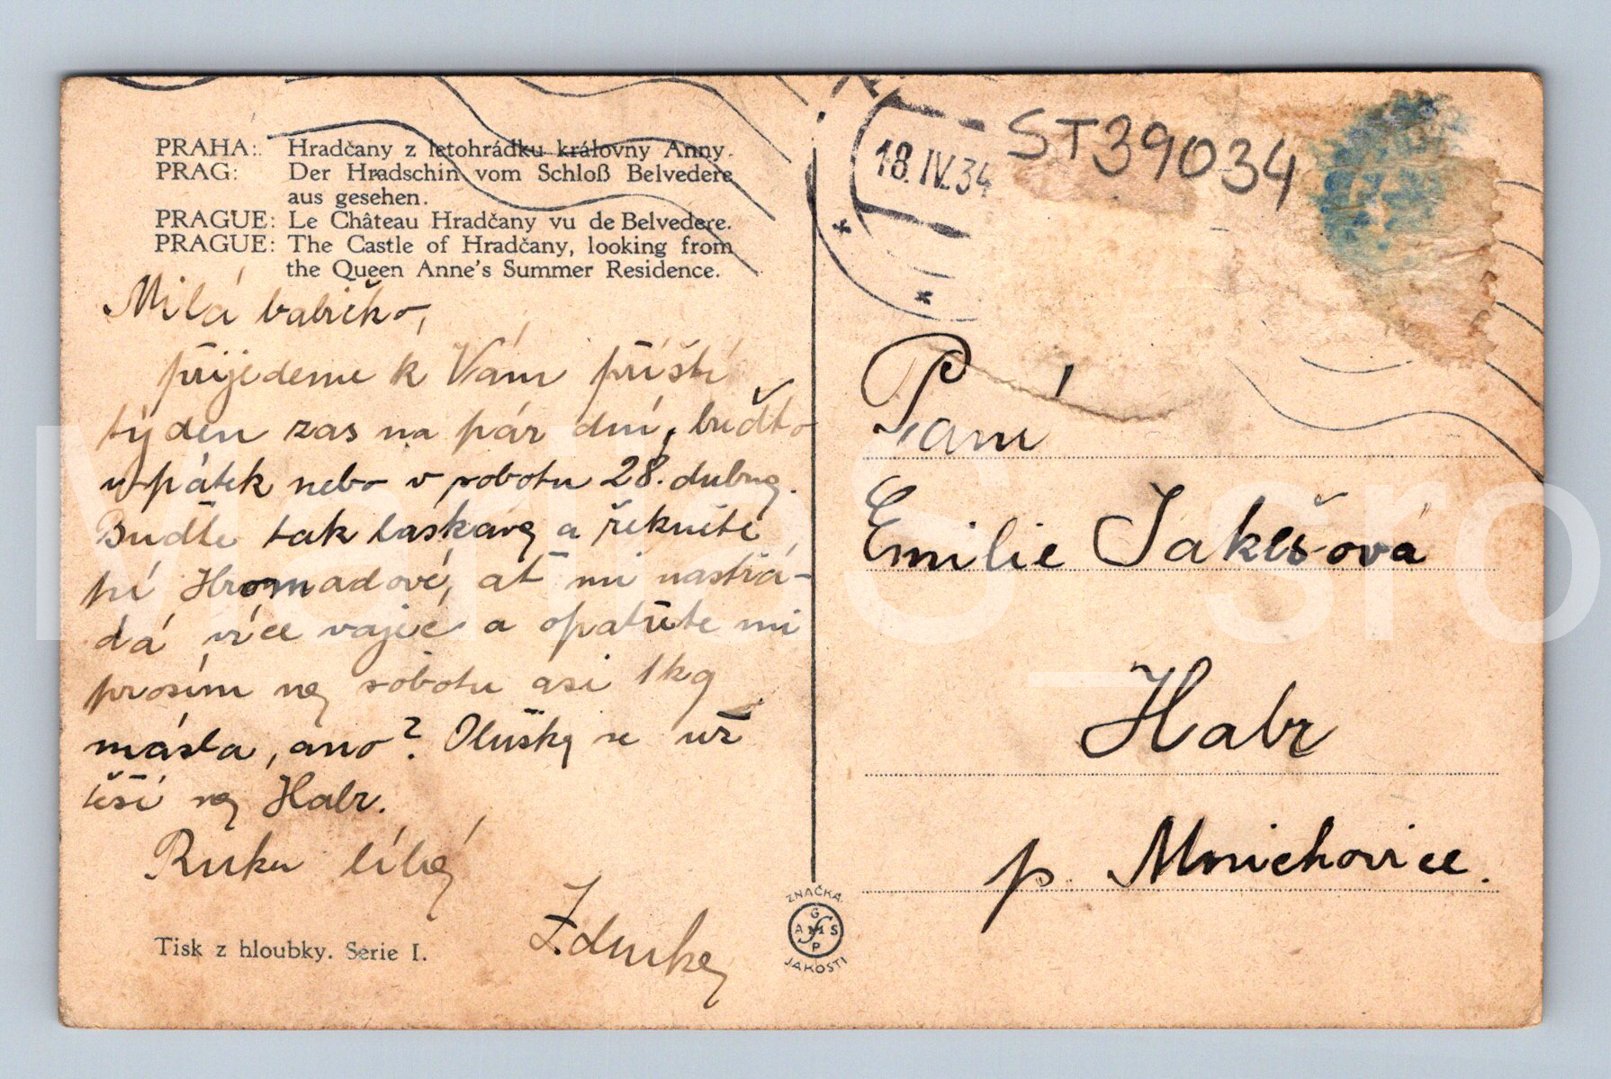 PRAHA: Hradčany z letohrádku královny Anny.
PRAG: Der Hradschin vom Schloß Belvedere
aus gesehen.
PRAGUE: Le Château Hradčany vu de Belvedere.
PRAGUE: The Castle of Hradčany, looking from
the Queen Anne's Summer Residence.
Milá babičko,
přijedeme k Vám příští
týden zas na pár dní, buďto
v pátek nebo v sobotu 28. dubna.
Buďte tak laskava a řekněte
pí Hromadové, ať mi nastřá-
dá více vajec a opatřte mi
prosím na sobotu asi 1kg
másla, ano? Oluška se už
těší na Habr.
Ruku líbá
Zdenka
Tisk z hloubky. Serie I.
ZNAČKA
G
A S
P
JAKOSTI
18.IV.34
ST39034
Paní
Emilie Jakešová
Habr
p. Mnichovice.